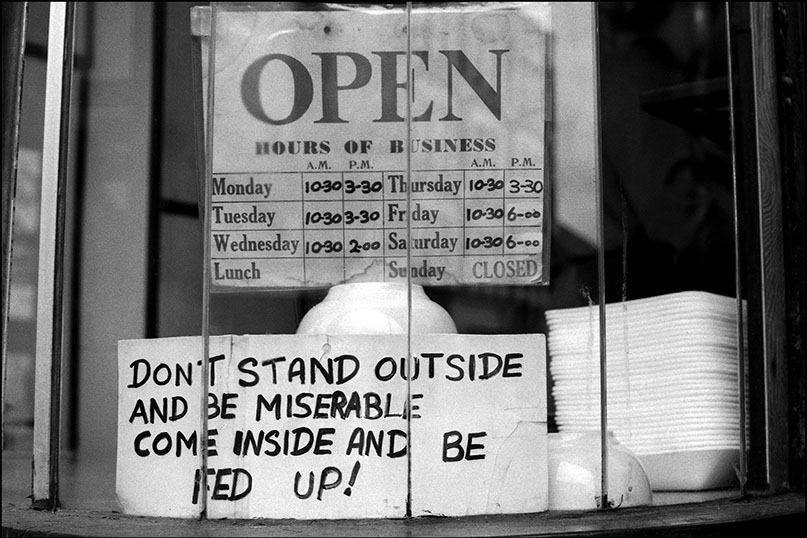 OPEN
HOURS OF BUSINESS
A.M. P.M. A.M. P.M.
Monday 10-30 3-30 Thursday 10-30 3-30
Tuesday 10-30 3-30 Friday 10-30 6-00
Wednesday 10-30 2-00 Saturday 10-30 6-00
Lunch Sunday CLOSED
DON'T STAND OUTSIDE
AND BE MISERABLE
COME INSIDE AND BE
FED UP!